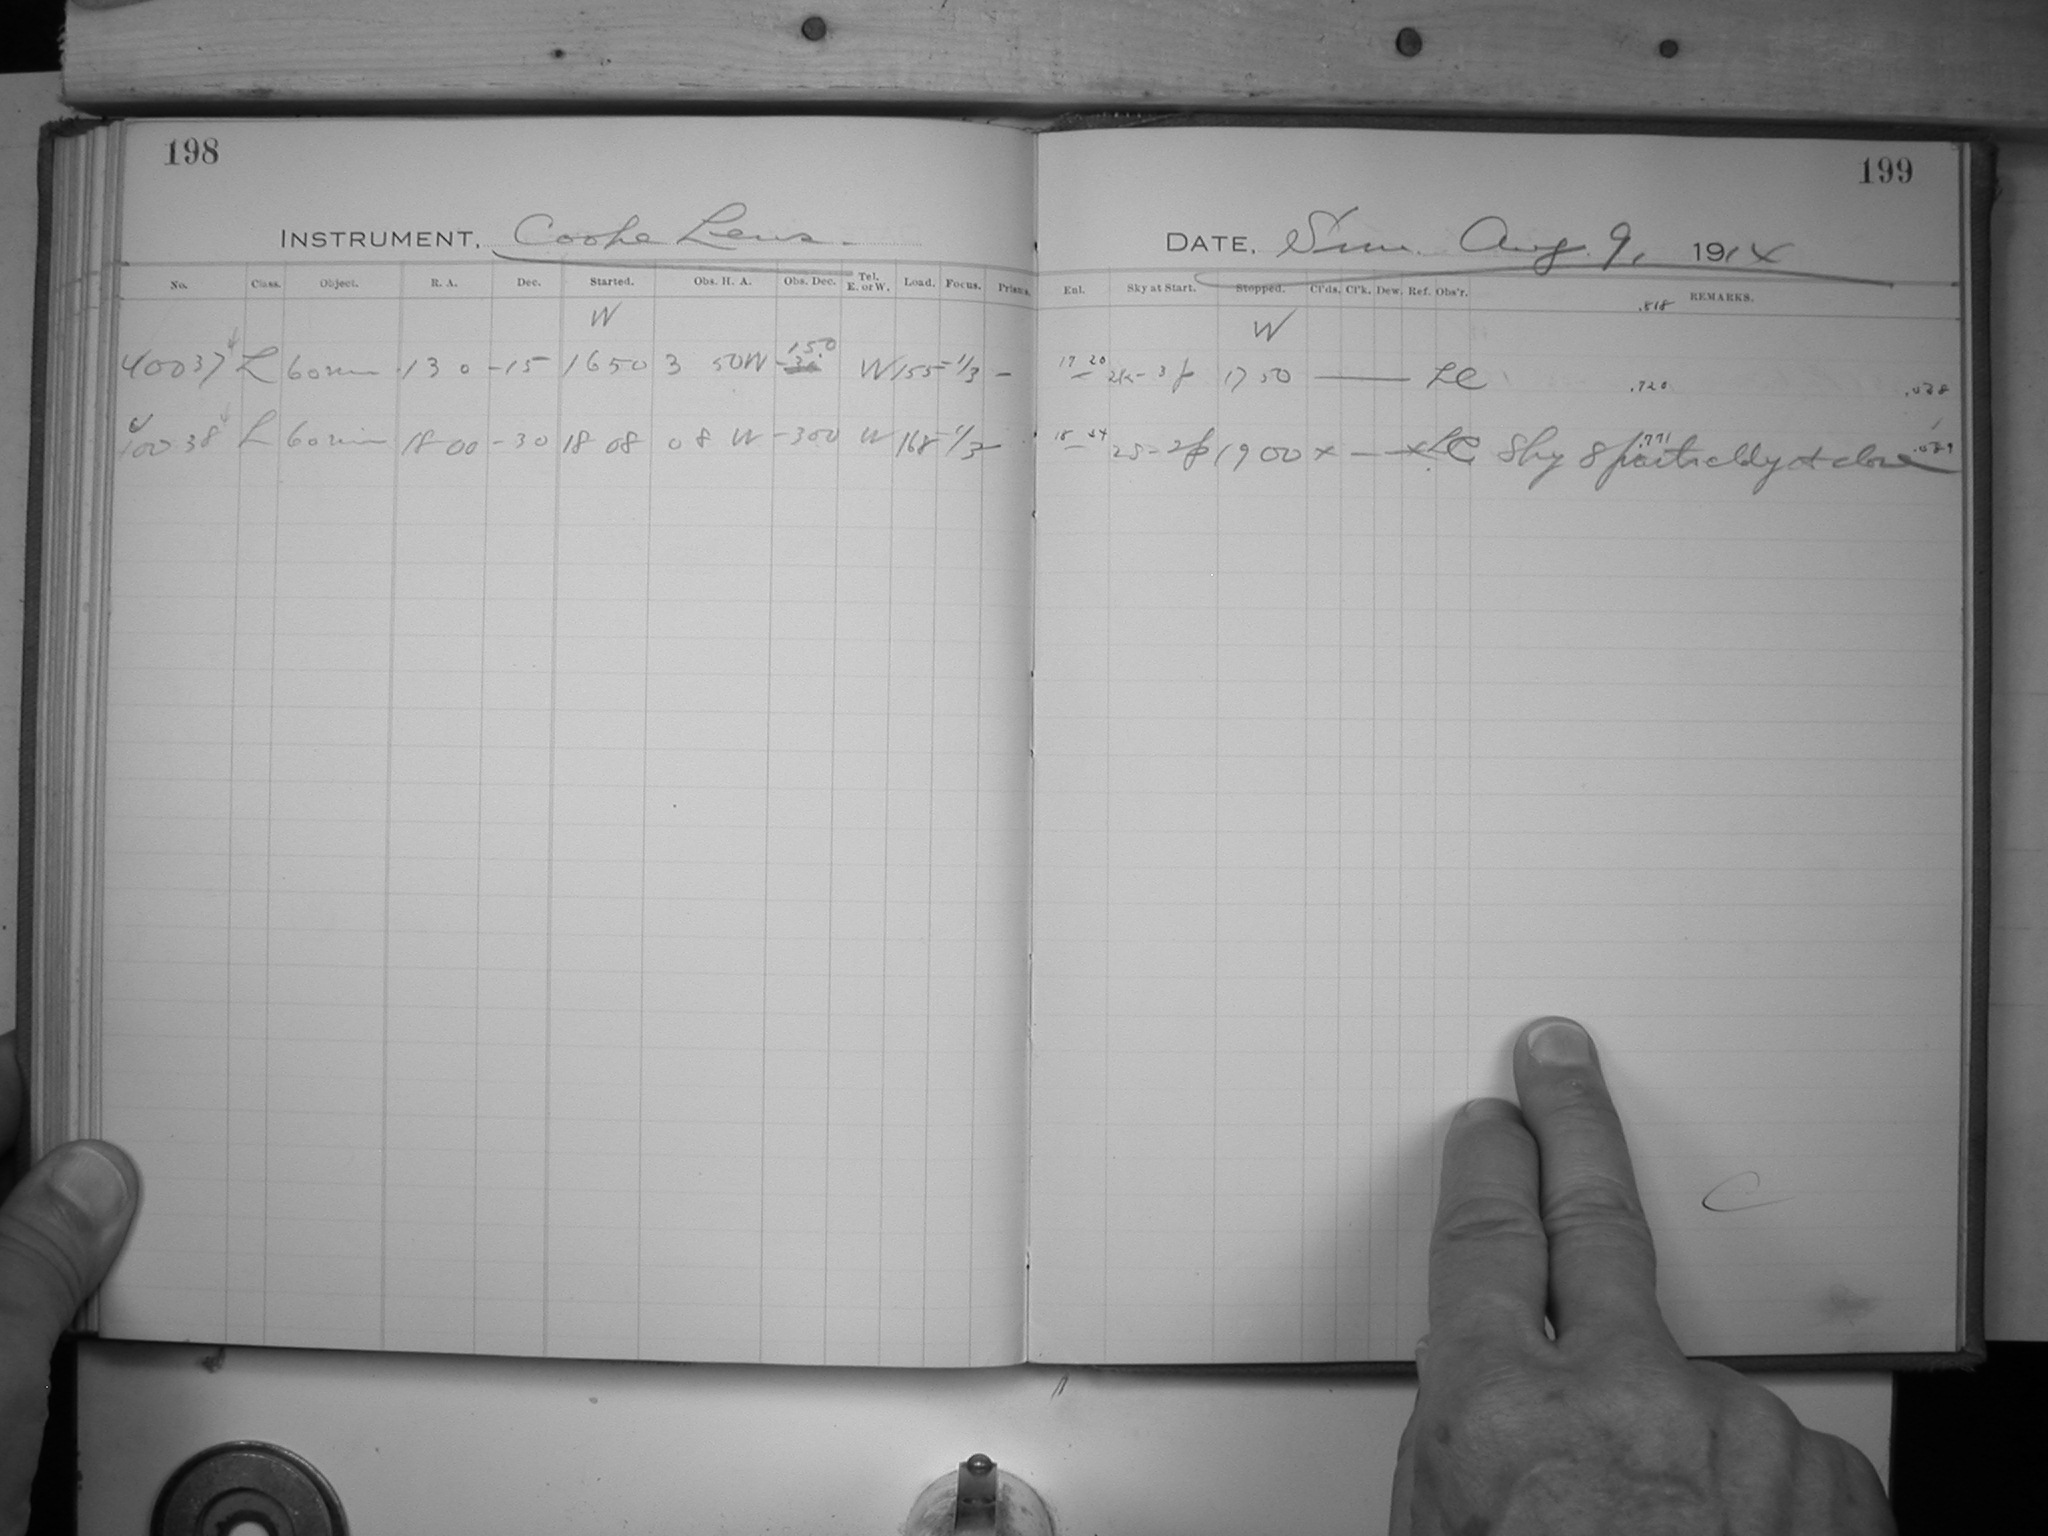 198
INSTRUMENT, Cooke Lens.
No. Class. Object. R. A. Dec. Started. Obs. H. A. Obs. Dec. Tel. E. or W. Load. Focus. Prisms.
W
40037 L 60 min 13 0 -15 1650 3 50W -150 W 155 -1/3 -
10038 L 60 min 18 00 -30 18 08 0 8 W -300 W 168 -1/3 -
199
DATE, Sun. Aug. 9, 1914
Enl. Sky at Start. Stopped. Cl'ds. Cl'k. Dew. Ref. Obs'r. REMARKS.
.818
W
17 20 - 3 p 1750 LC .720 .028
18 34 2s - 2p 1900 x — x LC Sky 8 parts cldy & close .771 .029
C